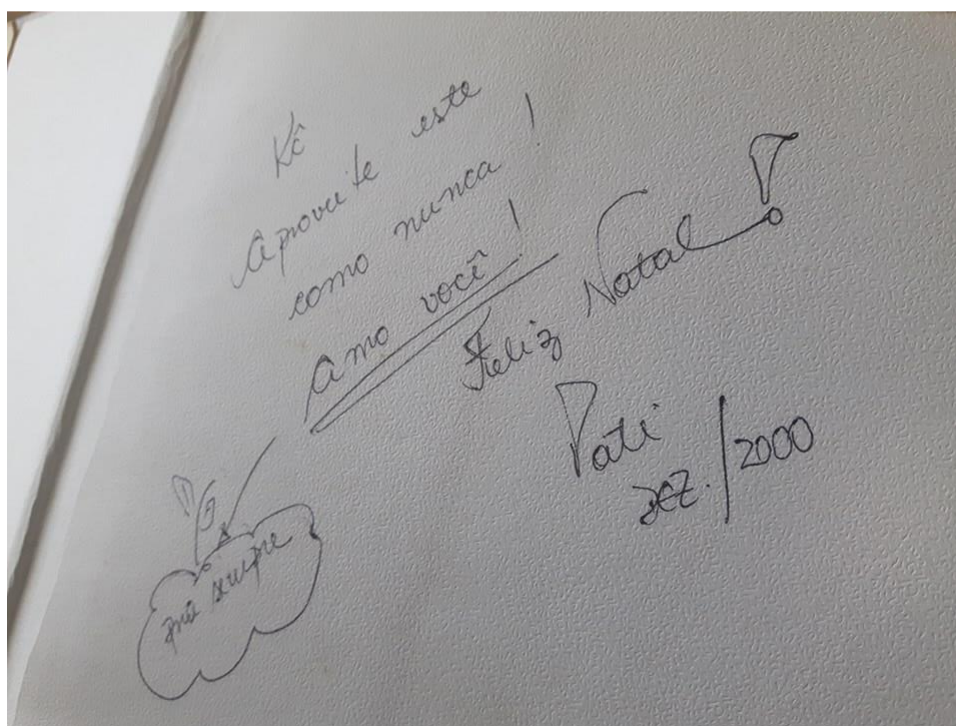 Kê
Aproveite este
como nunca!
Amo você!
Feliz Natal!
Pati
dez./2000
sempre